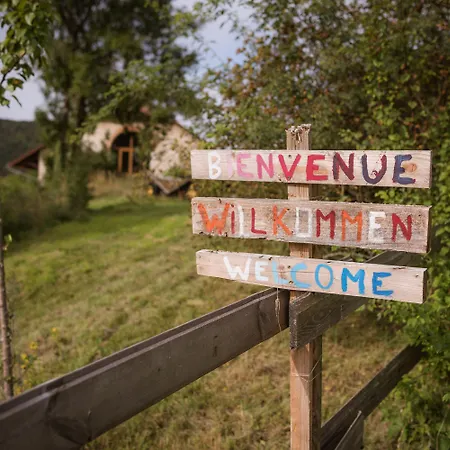 BIENVENUE
WILLKOMMEN
WELCOME